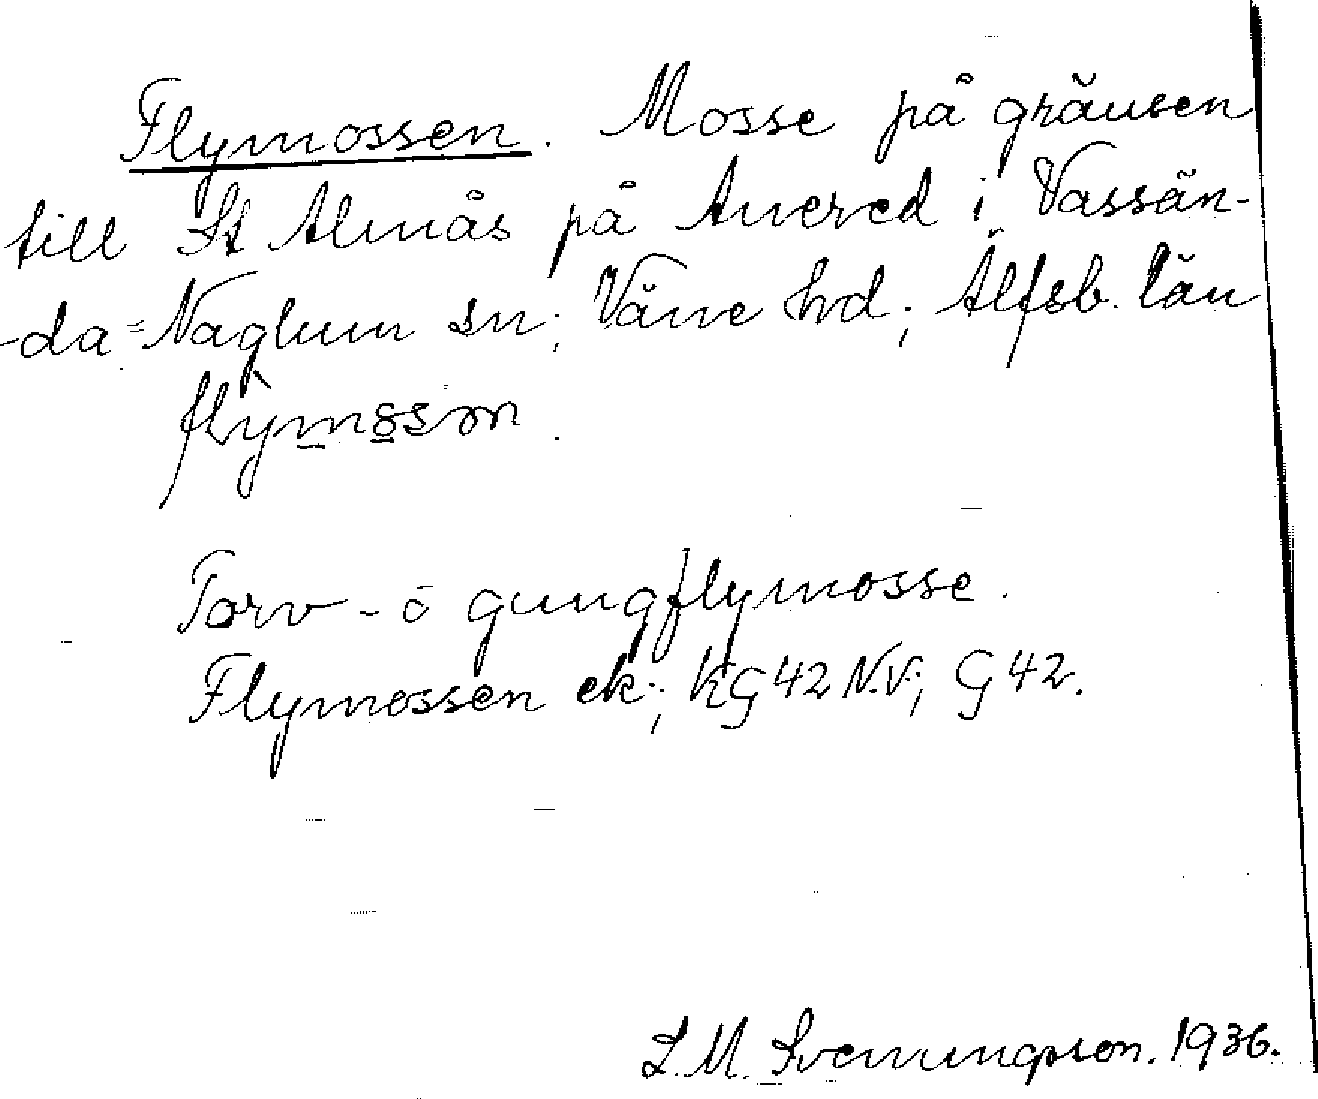 Flymossen. Mosse på gränsen
till St Almås på Anered i Vassän-
-da=Naglum sn; Väne hd; Älfsb. län
Torv- o gungflymosse.
Flymossen ek; KG 42 N.V; G 42.
L. M. Svenungsson. 1936.